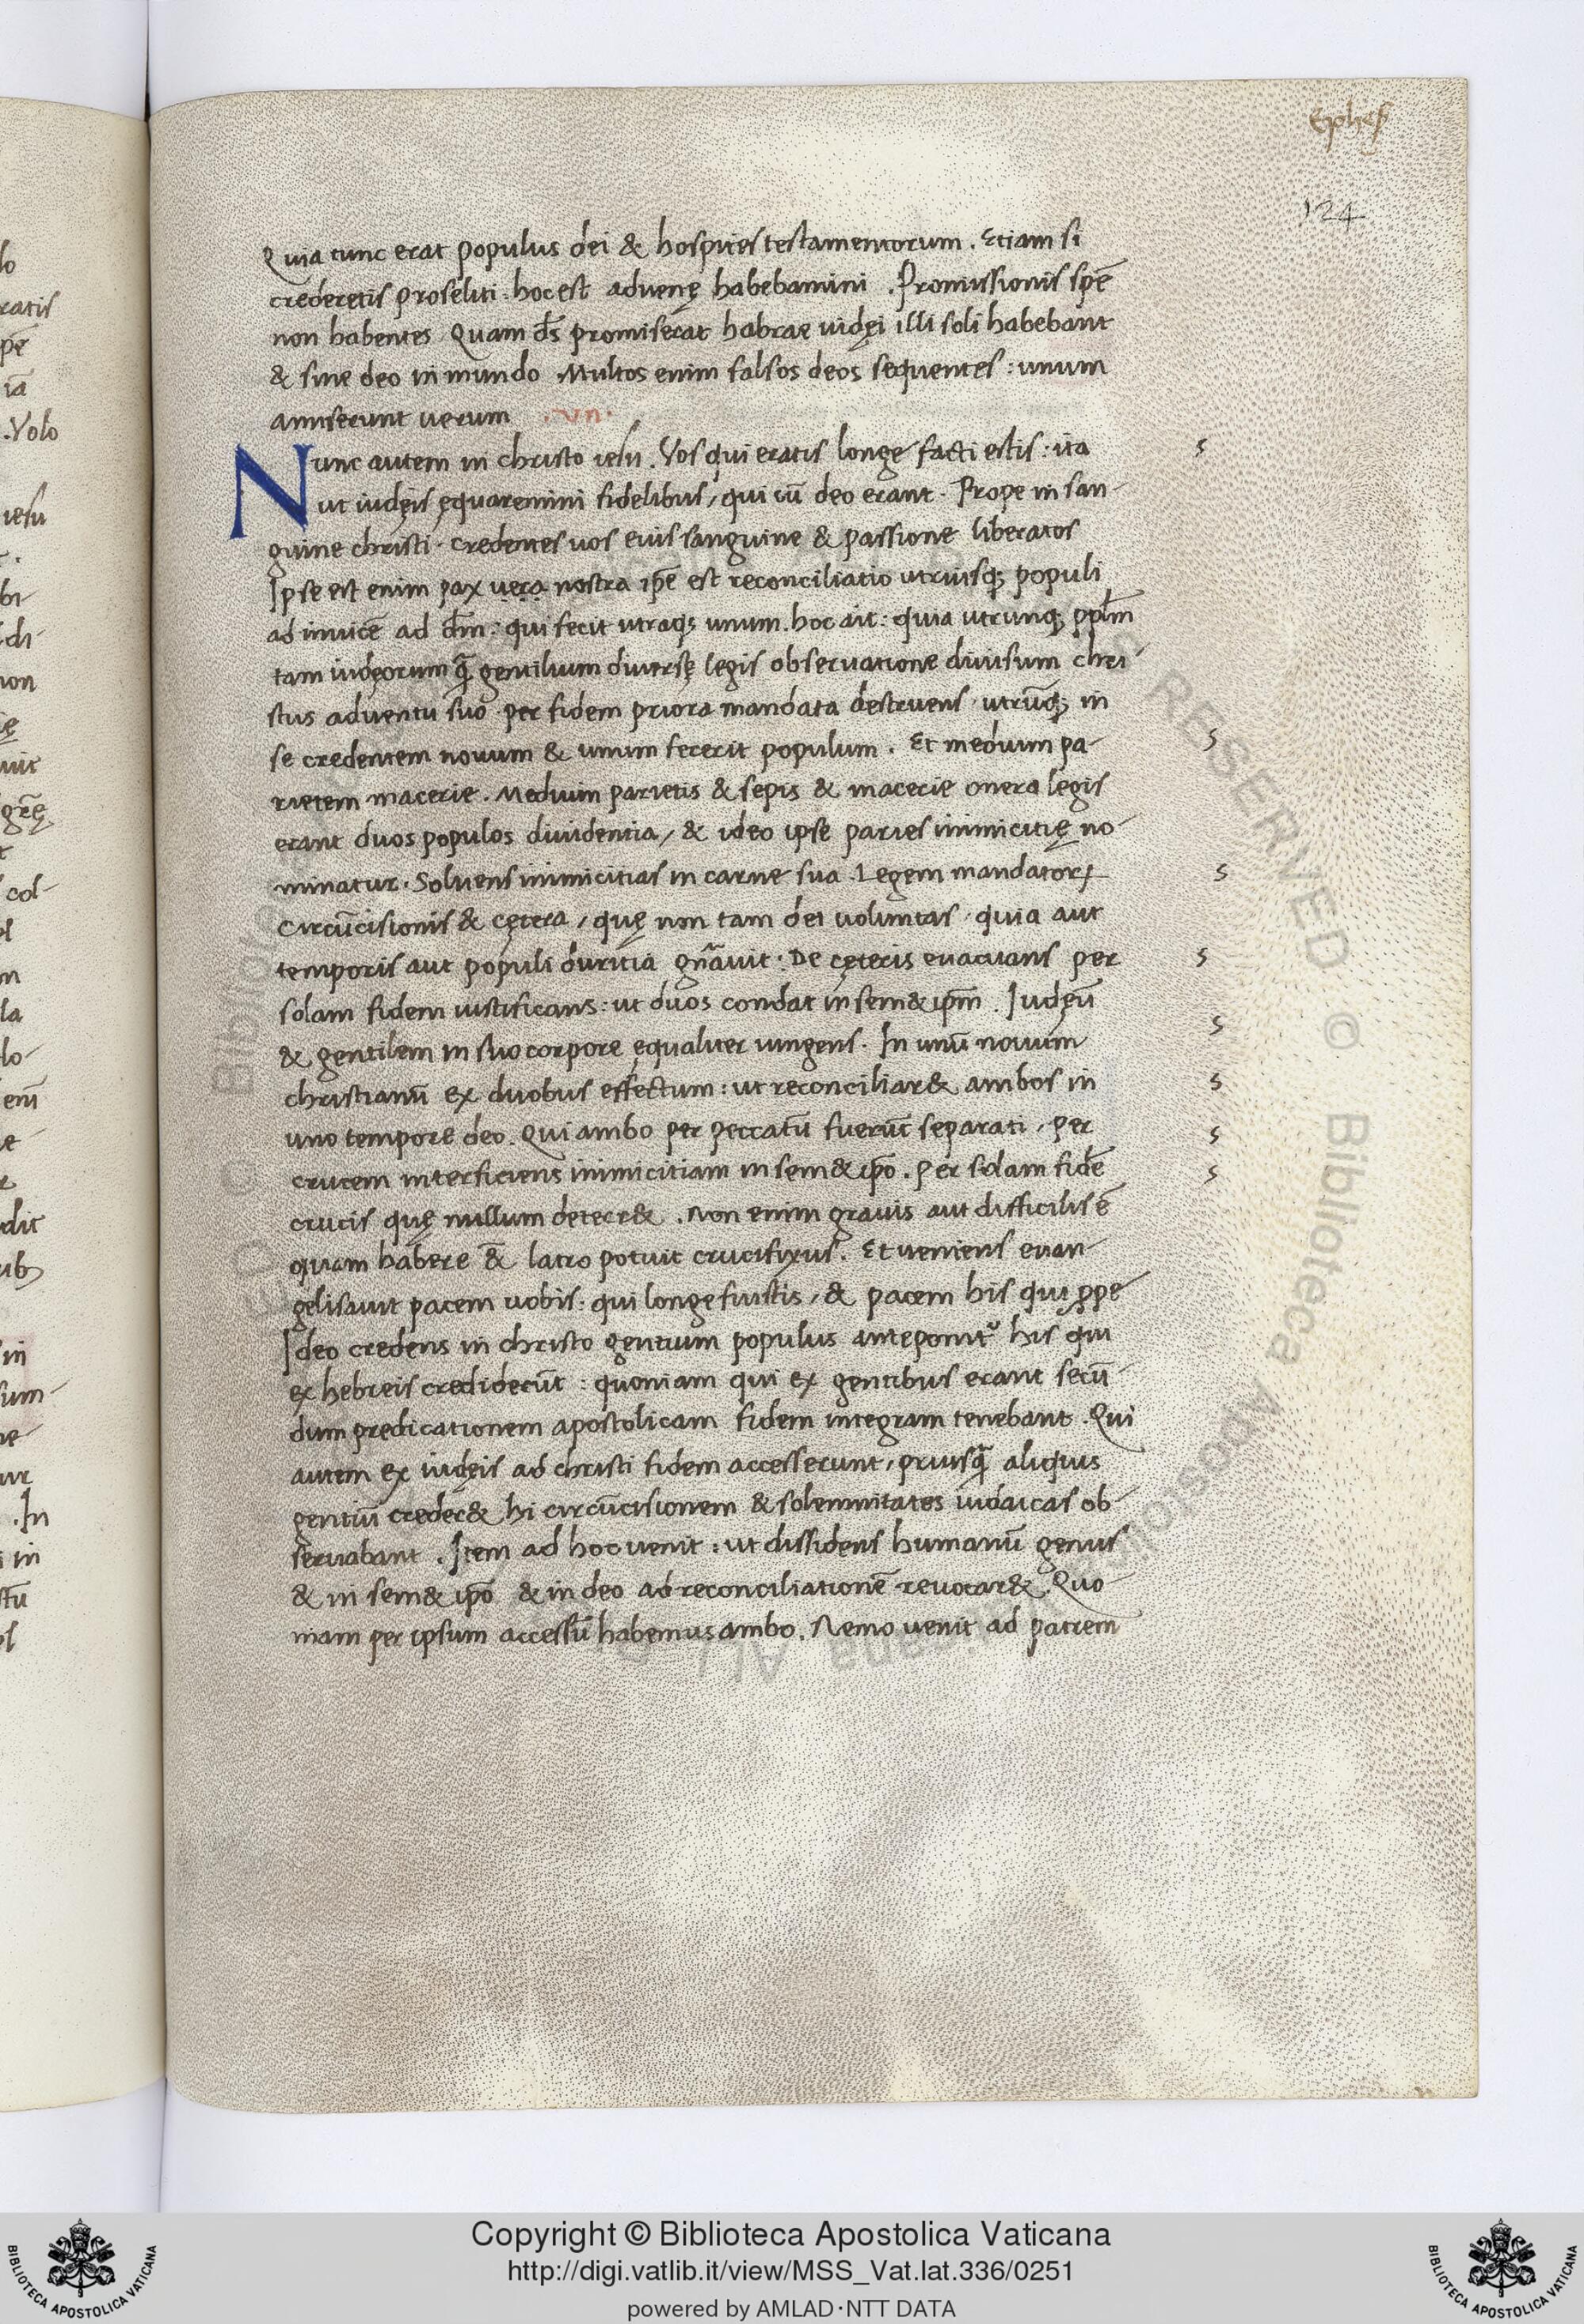 Ephes
124
Quia tunc erat populus dei & hospites testamentorum. Etiam si
crederetis proseliti: hoc est aduenę habebamini. Promissionis spē
non habentes Quam d̄s promiserat habrae iudęi illi soli habebant
& sine deo in mundo Multos enim falsos deos sequentes: unum
amiserunt uerum .vii.
Nunc autem in christo iesu. Vos qui eratis longe facti estis: ita s
ut iudęis ęquaremini fidelibus, qui cū deo erant. Prope in san-
guine christi. credentes uos eius sanguine & passione liberatos
Ipse est enim pax uera nostra ip̄e est reconciliatio utriusq; populi
ad inuicē ad d̄m: qui fecit utraq; unum. hoc ait: quia utrunq; ppl̄m
tam iudęorum q̄ gentilium diuersę legis obseruatione diuisum chri-
stus aduentu suo per fidem priora mandata destruens. utrūq; in
se credentem nouum & unum fecerit populum. Et medium pa- s
rietem macerie. Medium parietis & sepis & macerie onera legis
erant duos populos diuidentia, & ideo ipse paries inimicitię no-
minatur. Soluens inimicitias in carne sua. Legem mandatorꝝ s
circūcisionis & cętera, quę non tam dei uoluntas, quia aut
temporis aut populi duritia gn̄auit. De cęteris euacuans per s
solam fidem iustificans: ut duos condat in sem&ip̄m. Iudęū
& gentilem in suo corpore ęqualiter iungens. In unū nouum s
christianū ex duobus effectum: ut reconciliar& ambos in s
uno tempore deo. Qui ambo per peccatū fuerūt separati, per s
crucem interficiens inimicitiam in sem&ip̄o. Per solam fidē s
crucis quę nullum detecr&. Non enim grauis aut difficilis ē
quam habere & latro potuit crucifixus. Et ueniens euan-
gelisauit pacem uobis: qui longe fuistis, & pacem his qui ꝓpe
Ideo credens in christo gentium populus anteponit᷑ his qui
ex hebreis crediderūt: quoniam qui ex gentibus erant secū-
dum predicationem apostolicam fidem integram tenebant. Qui
autem ex iudęis ad christi fidem accesserunt, priusq̄ aliquis
gentiū creder& hi circūcisionem & solemnitates iudaicas ob-
seruabant. Item ad hoc uenit: ut dissidens humanū genus
& in sem&ip̄o & in deo ad reconciliationē reuocar&. Quo-
niam per ipsum accessū habemus ambo. Nemo uenit ad patrem
Copyright © Biblioteca Apostolica Vaticana
http://digi.vatlib.it/view/MSS_Vat.lat.336/0251
powered by AMLAD·NTT DATA
BIBLIOTECA APOSTOLICA VATICANA
BIBLIOTECA APOSTOLICA VATICANA